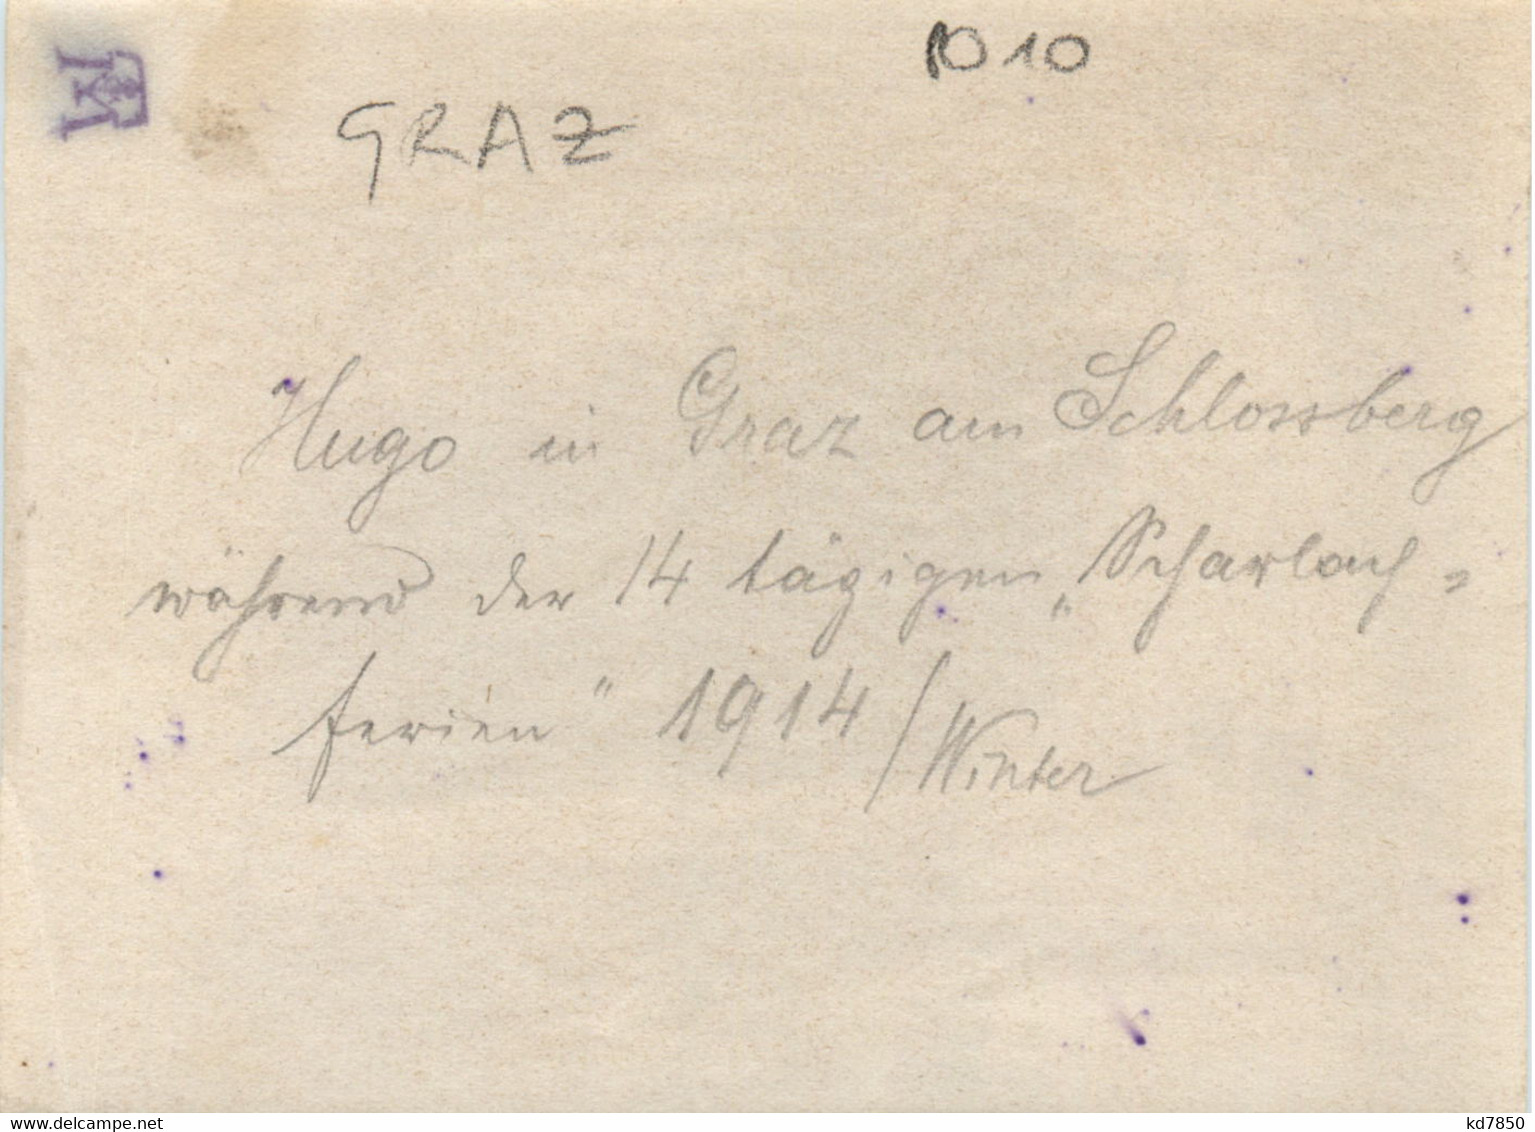 10 10
GRAZ
Hugo in Graz am Schlossberg
während der 14 tägigen „Scharlach=
ferien" 1914/Winter
www.delcampe.net
kd7850